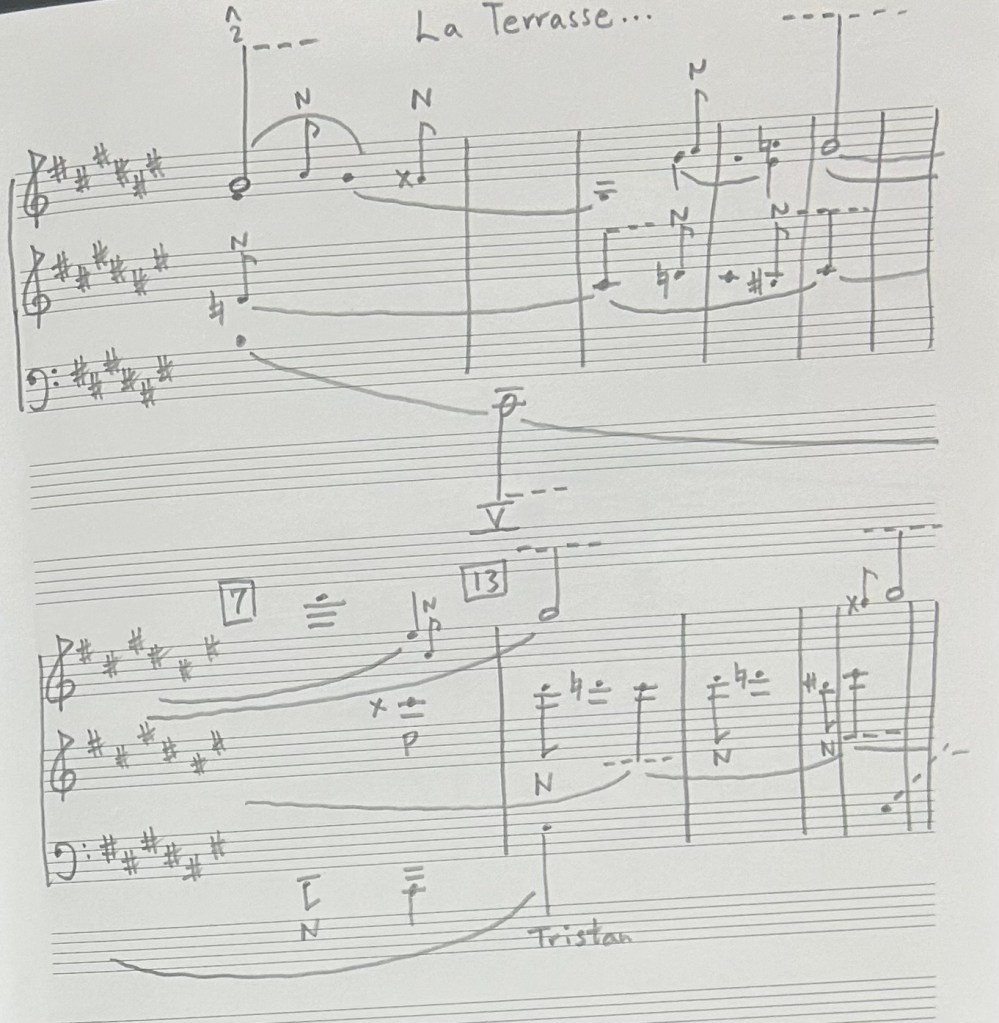 La Terrasse...
^
2
N N N
N N N
V
7 13
N
P
N N N
N
Tristan